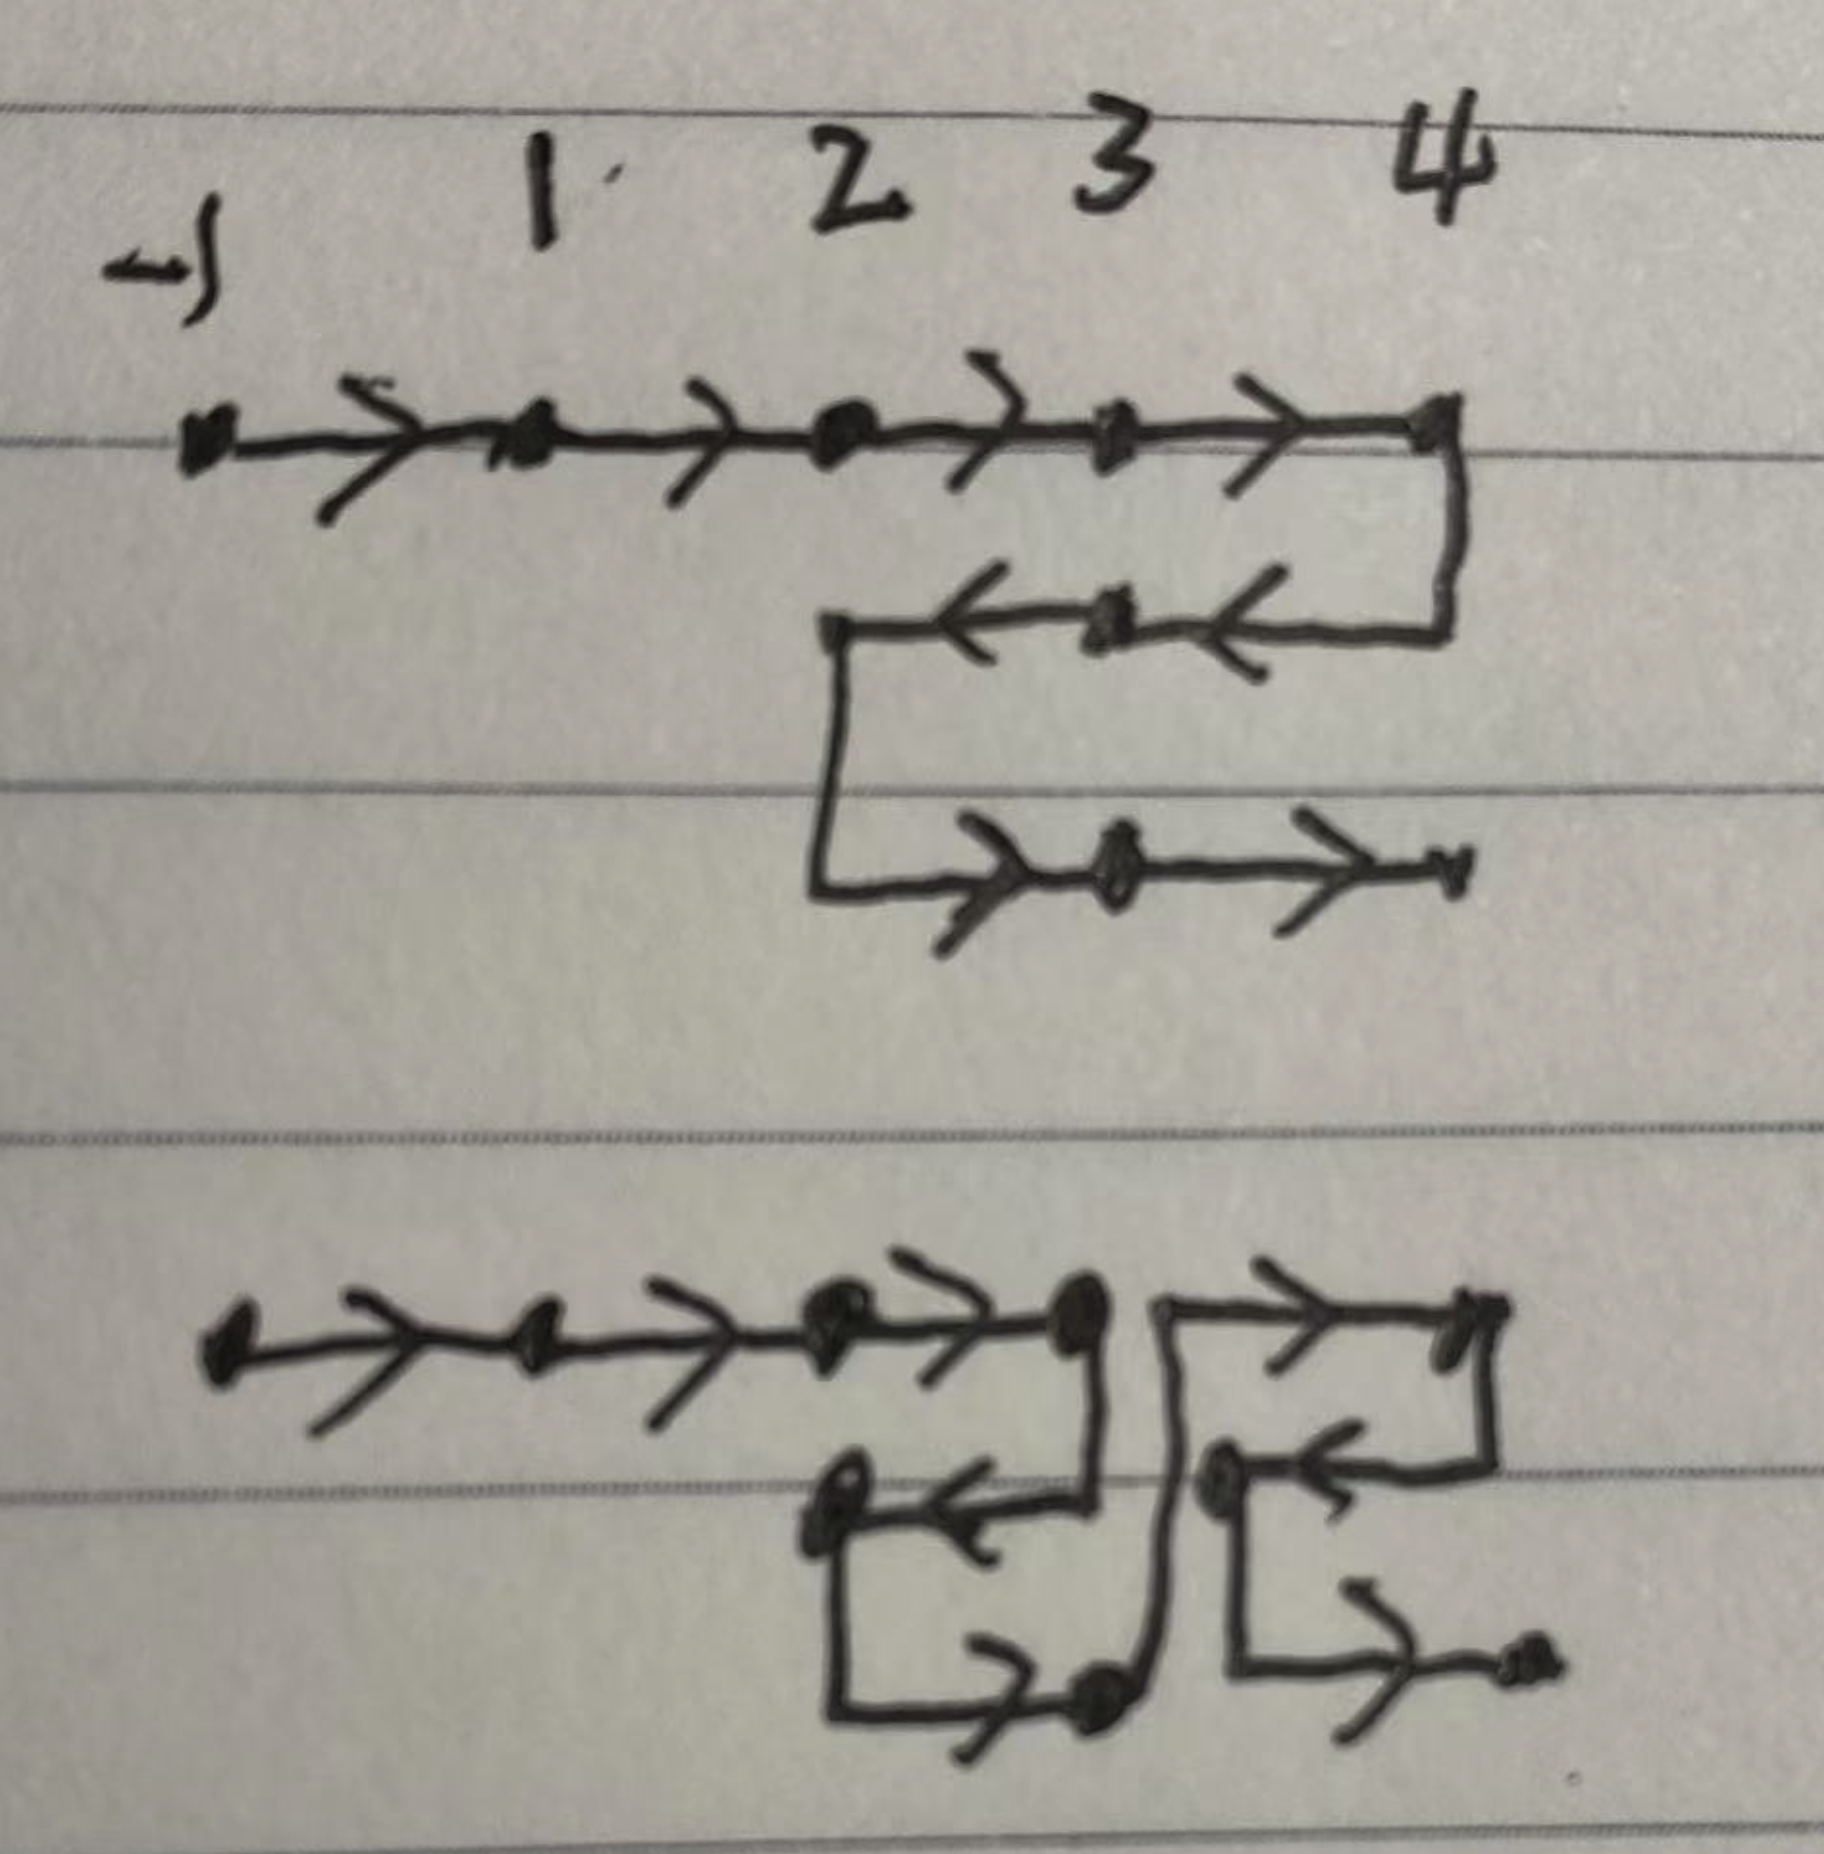 -1 1 2 3 4